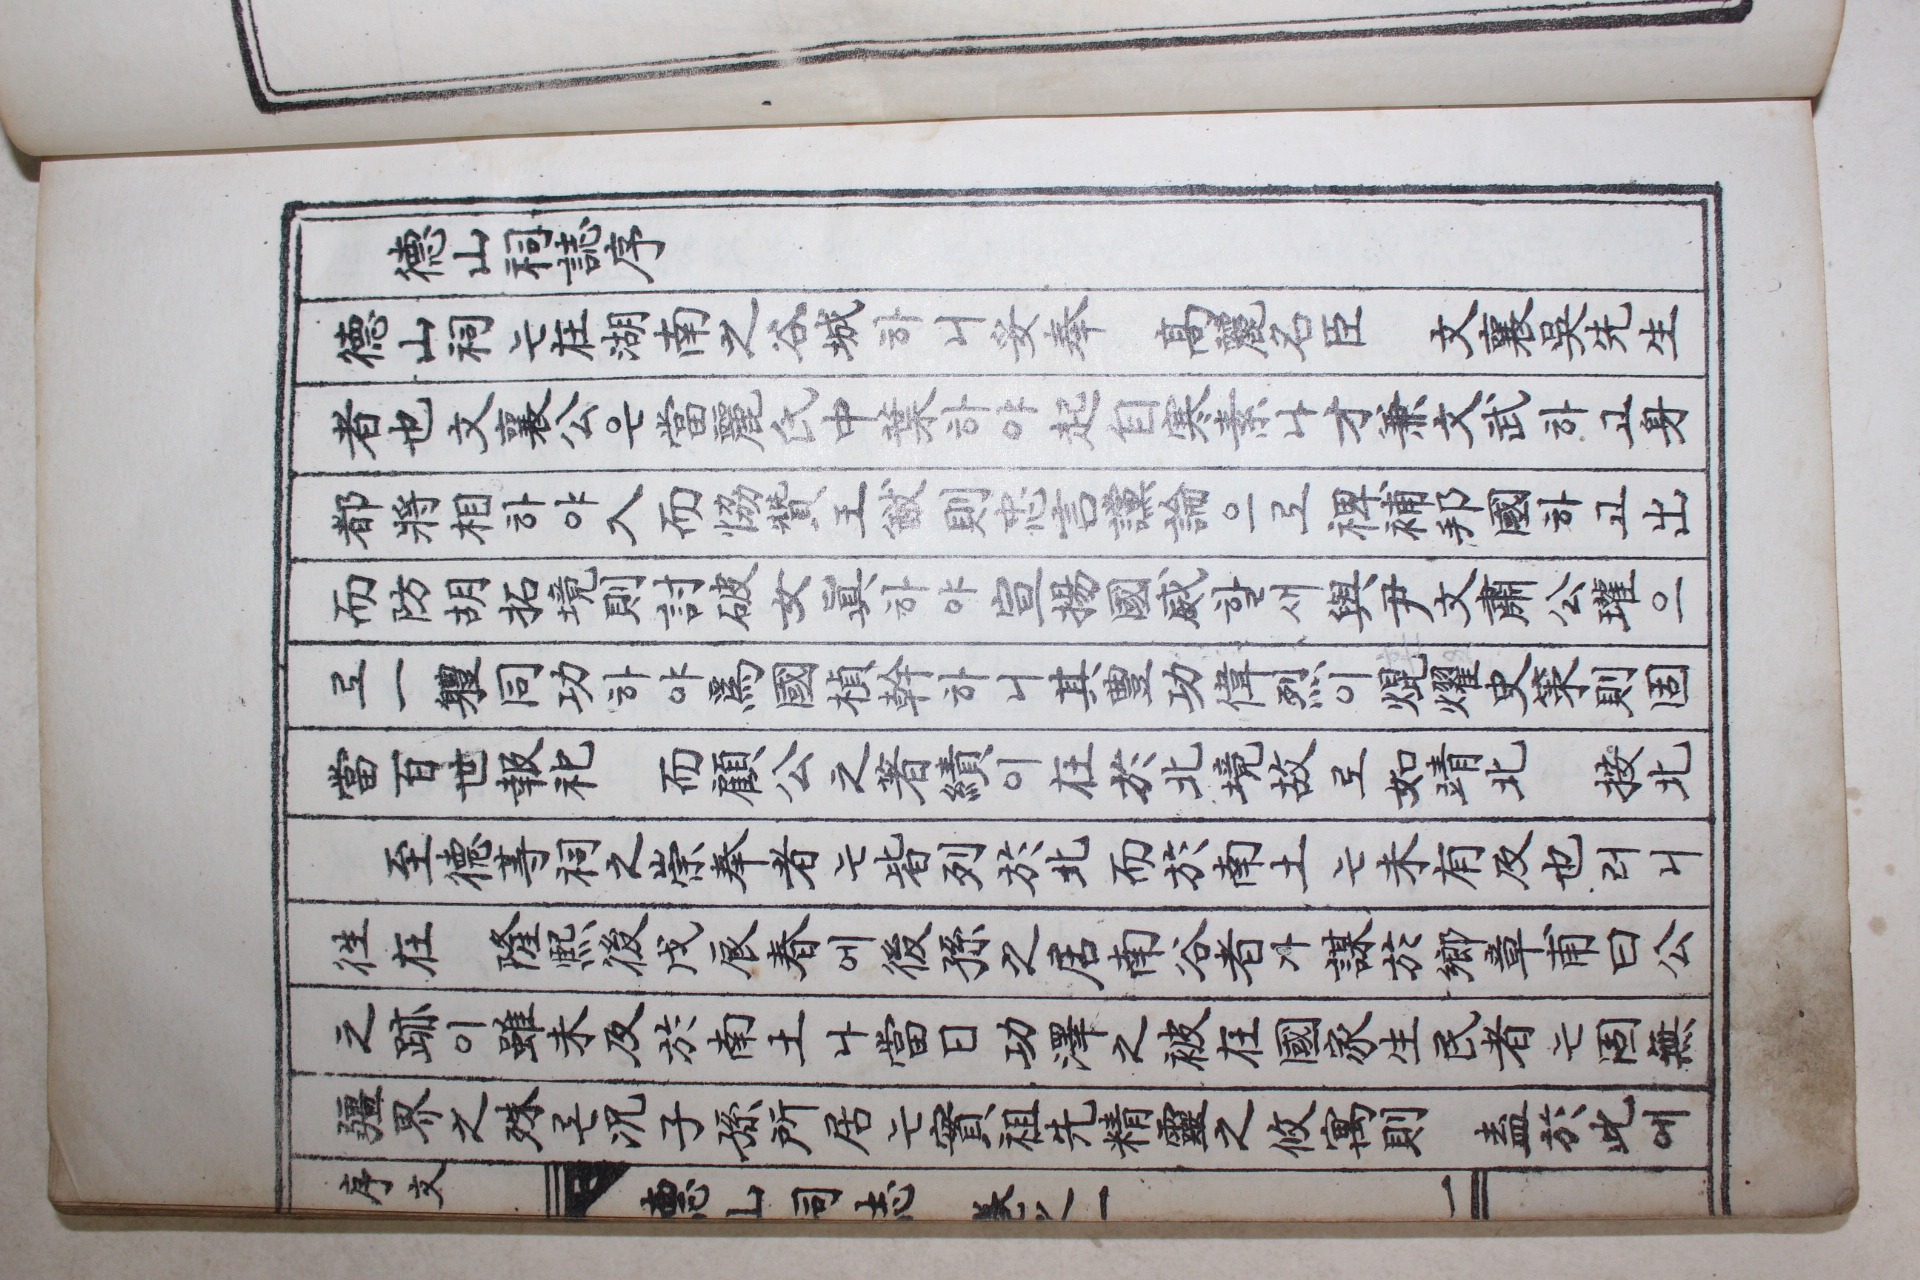 德山祠誌序
德山祠는在湖南之谷城하니妥奉 高麗名臣 文襄吳先生
者也文襄公은當麗氏中葉하야起自寒素나才兼文武하고身
都將相하야入而恊贊王猷則忠言讜論으로裨補邦國하고出
而防胡拓境則討破女眞하야宣揚國威할새與尹文肅公瓘으
로一軆同功하야爲國楨幹하니其豊功偉烈이焜耀史策則固
當百世報祀 而顧公之著績이在於北境故로如靖北 接北
至德等祠之崇奉者는皆列於北而於南土는未有及也러니
徃在 隆熙後戊辰春에後孫之居南谷者가謀於鄕章甫曰公
之跡이雖未及於南土나當日功澤之被在國家生民者는固無
疆界之殊온況子孫所居는實祖先精靈之攸寓則 盍於此에
序文
德山祠志 卷之一
一